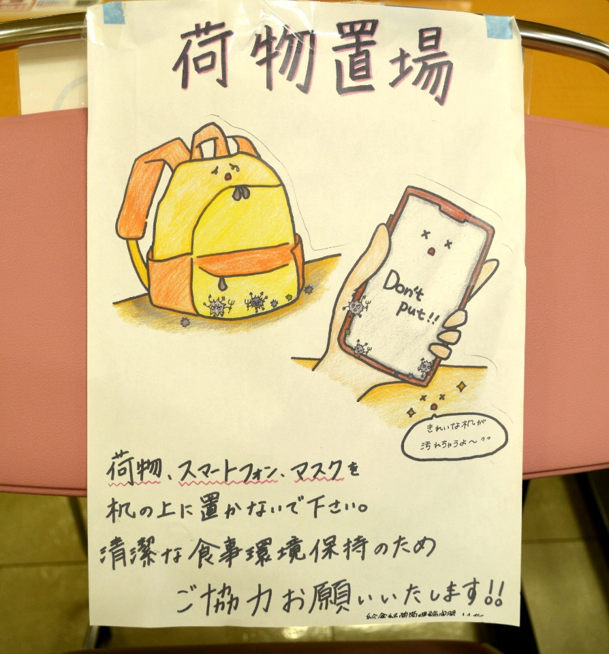 荷物置場
Don't
put!!
きれいな机が
汚れちゃうよ〜
荷物、スマートフォン、マスクを
机の上に置かないで下さい。
清潔な食事環境保持のため
ご協力お願いいたします!!